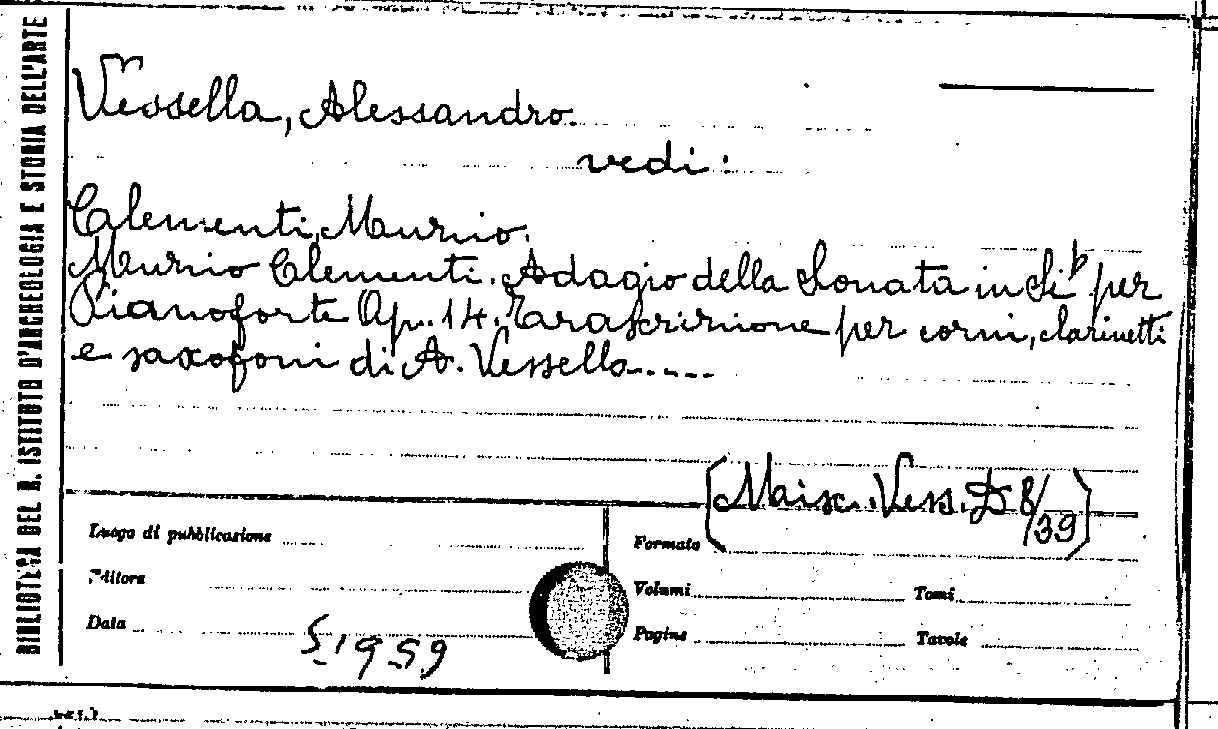 BIBLIOTECA DEL R. ISTITUTO D'ARCHEOLOGIA E STORIA DELL'ARTE
Vessella, Alessandro.
vedi:
Clementi, Muzio.
Muzio Clementi. Adagio della Sonata in Si♭ per
Pianoforte Op. 14. Trascrizione per corni, clarinetti
e saxofoni di A. Vessella.....
[Misc. Vess. D 8/39]
Luogo di pubblicazione
Formato
Editore
Volumi Tomi
Data
Pagine Tavole
51959